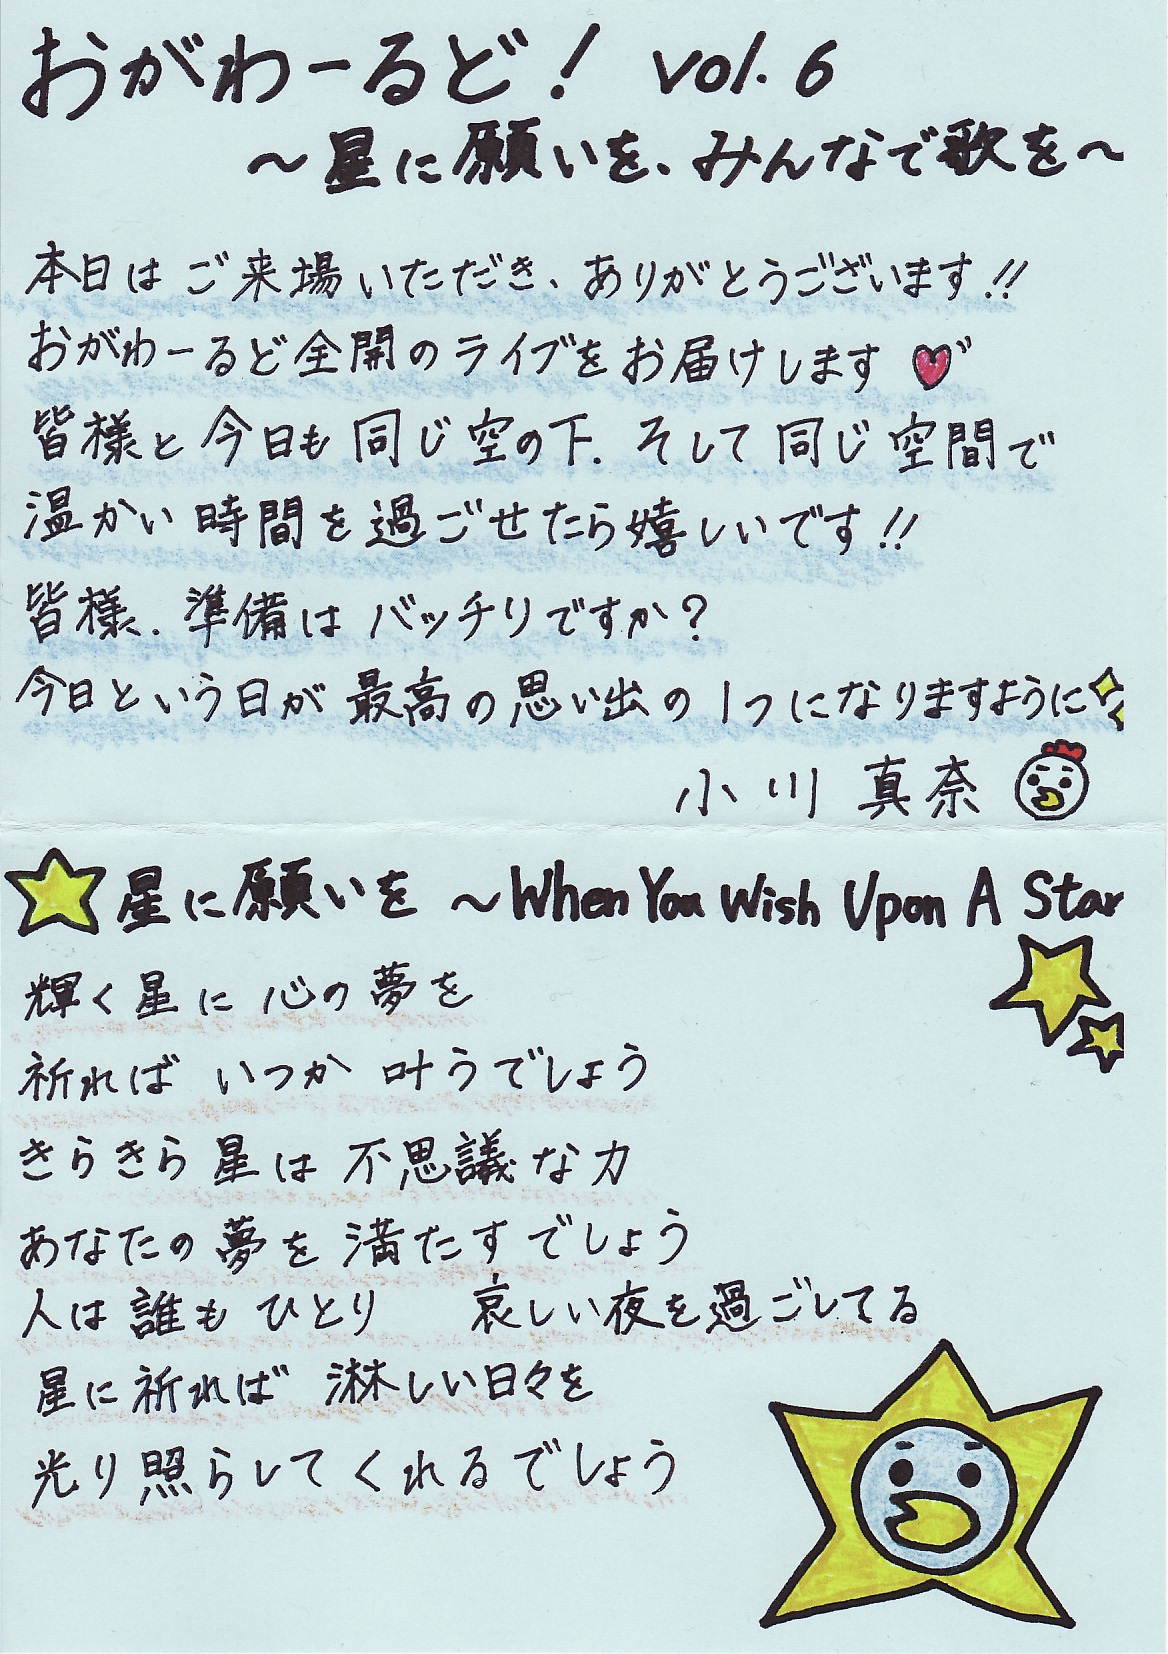 おがわーるど! vol. 6
〜星に願いを、みんなで歌を〜
本日はご来場いただき、ありがとうございます!!
おがわーるど全開のライブをお届けします
皆様と今日も同じ空の下、そして同じ空間で
温かい時間を過ごせたら嬉しいです!!
皆様、準備はバッチリですか?
今日という日が最高の思い出の1つになりますように
小川 真奈
星に願いを 〜When You Wish Upon A Star
輝く星に 心の夢を
祈れば いつか 叶うでしょう
きらきら星は 不思議な力
あなたの夢を 満たすでしょう
人は誰も ひとり 哀しい夜を過ごしてる
星に祈れば 淋しい日々を
光り照らしてくれるでしょう